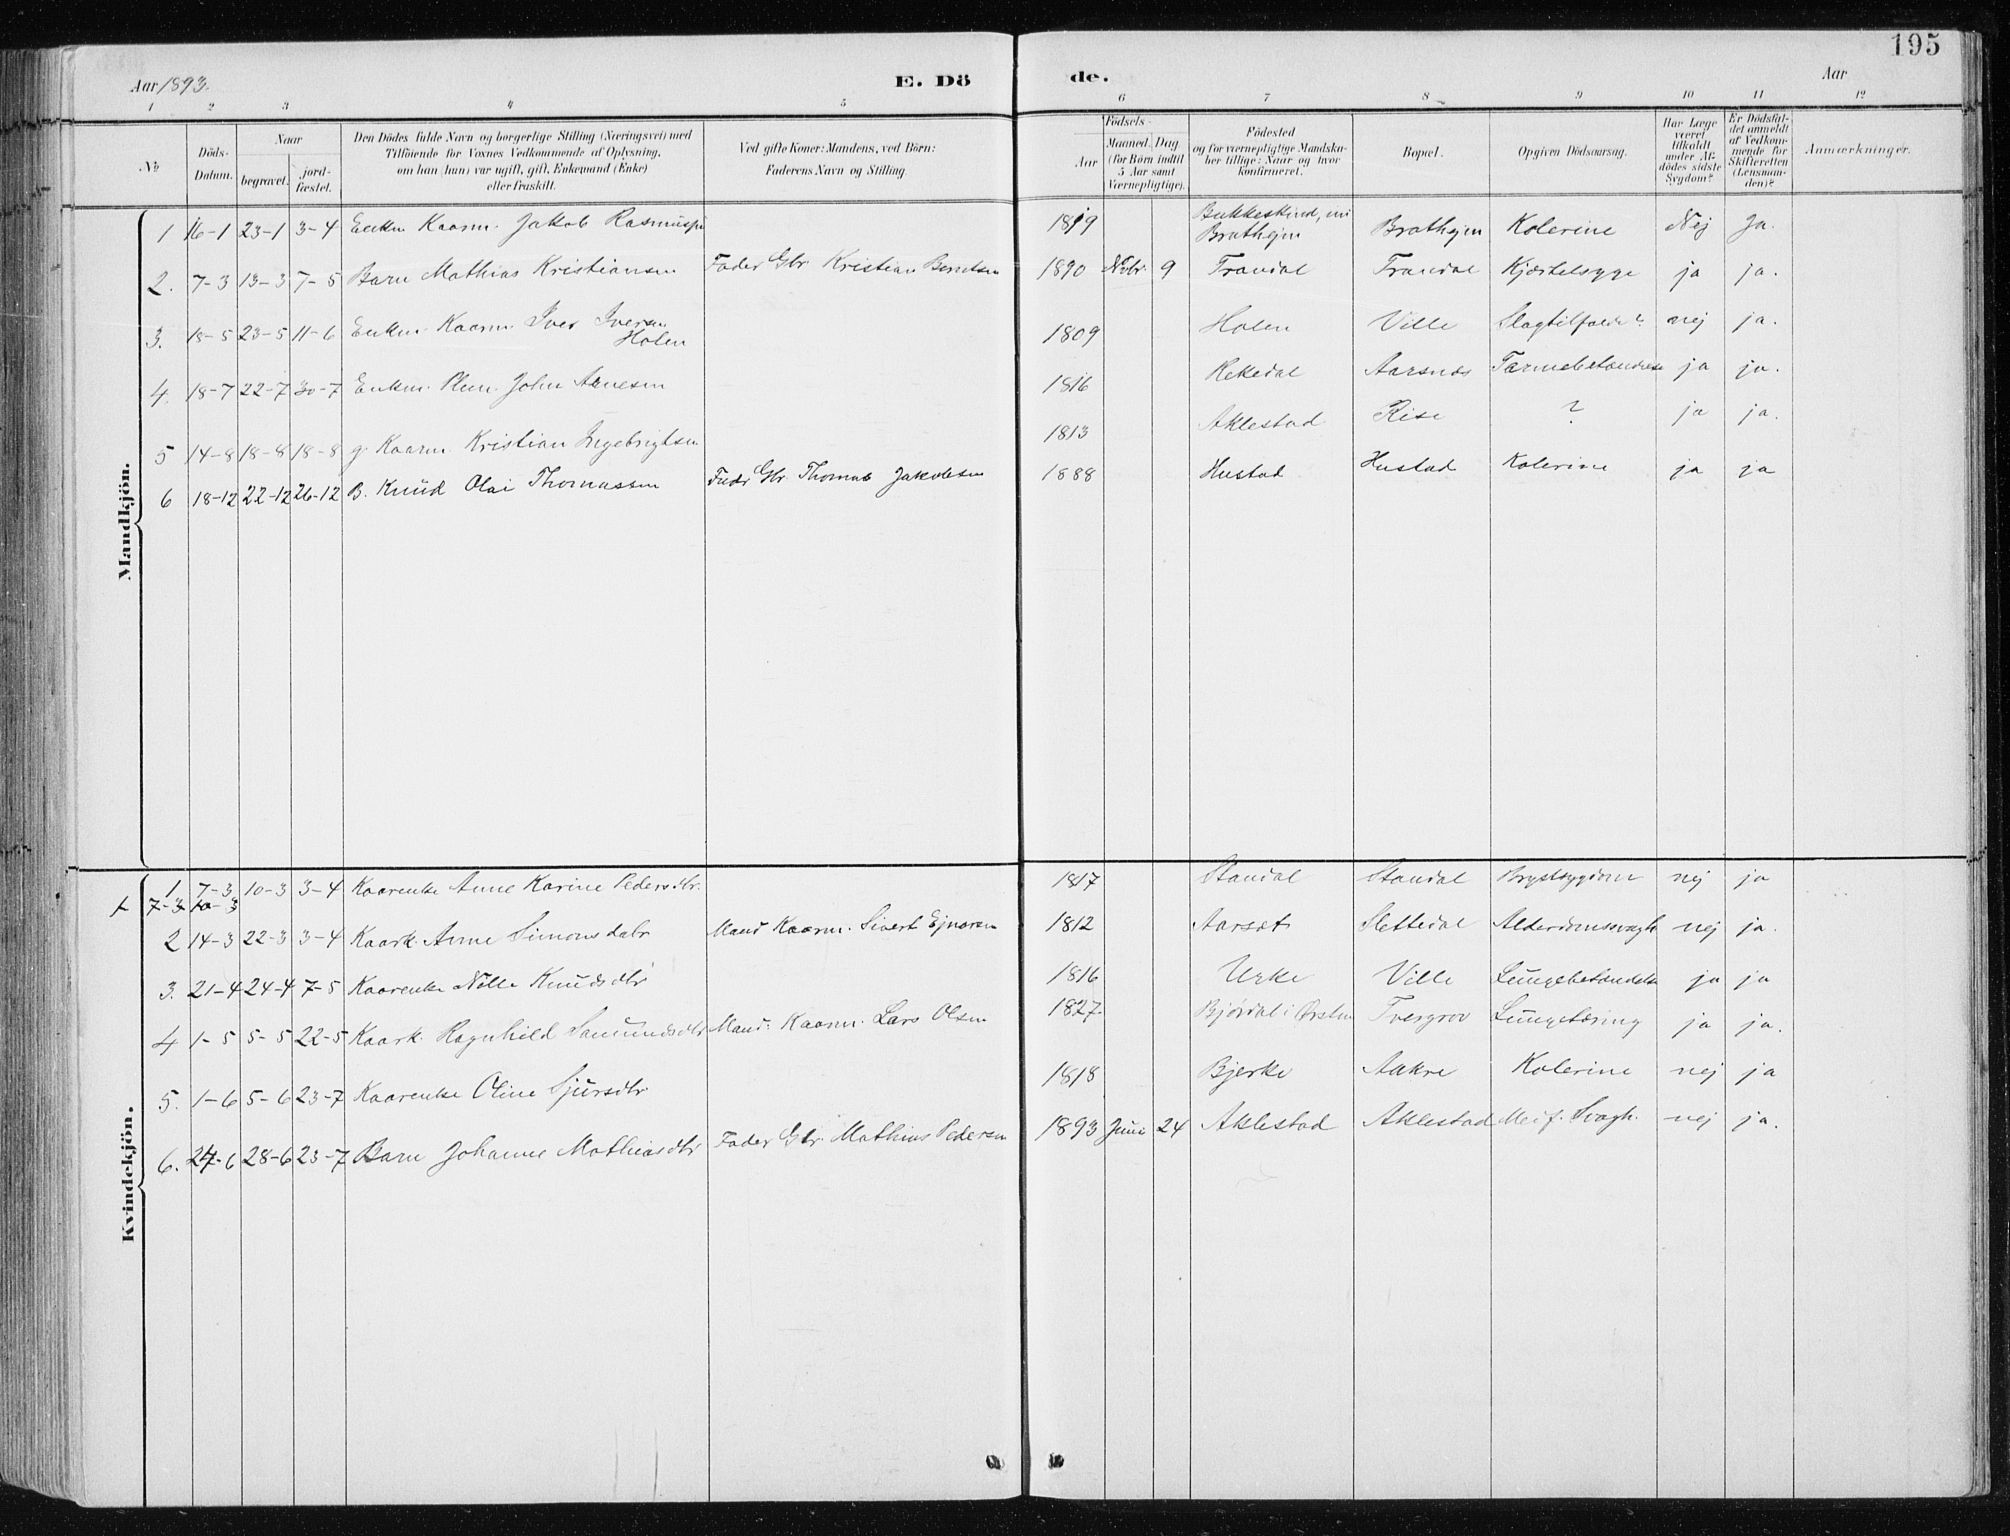 195
Aar 1893. E. Dö de. Aar
1 2 3 4 5 6 7 8 9 10 11 12
No
Döds-Datum.
Naar
begravet.
jordfæstet.
Den Dödes fulde Navn og borgerlige Stilling (Næringsvei) med
Tilföiende for Voxnes Vedkommende af Oplysning,
om han (hun) var ugift, gift, Enkemand (Enke)
eller fraskilt.
Ved gifte Koner: Mandens, ved Börn:
Faderens Navn og Stilling.
Födsels-
Aar
Maaned. Dag
(for Börn indtil
5 Aar samt
Værnepligtige).
Födested
og for værnepligtige Mandskaber tillige: Naar og hvor
konfirmeret.
Bopæl.
Opgiven Dödsaarsag.
Har Læge
været
tilkaldt
under Afdödes sidste
Sygdom?
Er Dödsfaldet anmeldt
af Vedkommende for
Skifteretten
(Lensmanden)?
Anmærkninger.
Mandkjön.
1 16-1 23-1 3-4 Enkm Kaarm. Jakob Rasmussen 1819 Brathejm Kolerine Nej Ja.
2. 7-3 13-3 7-5 Barn Mathias Kristiansen Fader Gbr. Kristian Berntsen 1890 Novbr. 9 Trandal Trandal Kjærtelsyge ja ja.
3. 18-5 23-5 11-6 Enkm. Kaarm. Iver Iversen Holen 1809 Holen Ville Slagtilfælde? nej ja.
4. 18-7 22-7 30-7 Enkm. John Arnesen 1816 Rekedal Aarsnæs Tarmebetændelse ja ja.
5 14-8 18-8 18-8 g. Kaarm Kristian Ingebrigtsen 1813 Aklestad Rise ? ja ja.
6 18-12 22-12 26-12 B. Knud Olai Thomassen Fader Gbr. Thomas Jakobsen 1888 Hustad Hustad Kolerine ja ja
Kvindekjön.
1. 7-3 10-3 3-4 Kaarenke Anne Karine Pedersdtr. 1817 Standal Standal Brystsygdom nej ja
7-3 10-3
2 14-3 22-3 3-4 Kaark. Anne Simonsdatr Mand Kaarm. Sivert Ejnarsen 1812 Aarset Slettedal Alderdomssvagh. nej ja.
3. 21-4 24-4 7-5 Kaarenke Nille Knudsdtr 1816 Urke Ville Lungebetændelse ja ja
4 1-5 5-5 22-5 Kaark. Ragnhild Samundsdtr Mand: Kaarm. Lars Olsen 1827. Bjørdal i Ørsten Tvergrov Lungetæring ja ja.
5. 1-6 5-6 23-7 Kaarenke Oline Sjursdtr 1818 Bjerke Aakre Kolerine nej ja
6. 24-6 28-6 23-7 Barn Johanne Mathiasdtr Fader Gbr. Mathias Pedersen 1893 Juni 24 Aklestad Aklestad Medf. Svagh. nej ja.